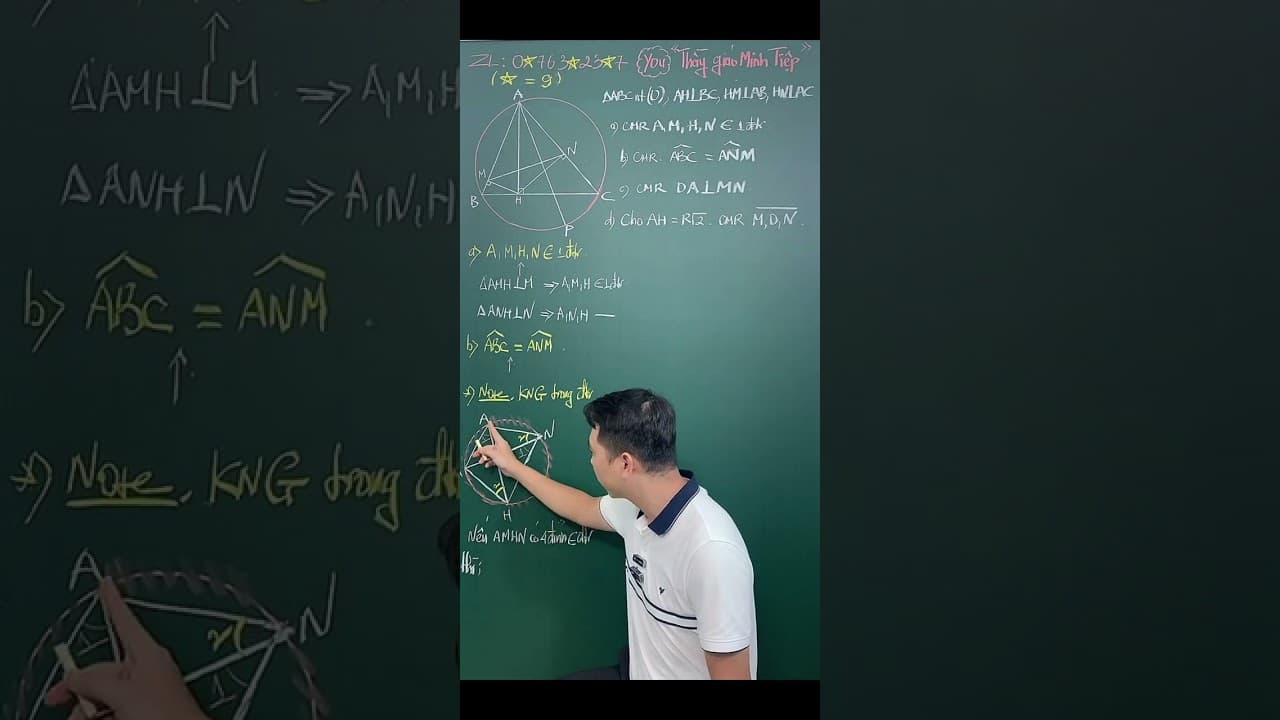 ZL: 0☆763☆25☆7 You "Thầy giáo Minh Tiệp"
(☆ = 9)
ΔABC nt (O), AH⊥BC, HM⊥AB, HN⊥AC
a) CMR A, M, H, N ∈ 1 đtr
b) CMR: ABC = ANM
c) CMR OA⊥MN
d) Cho AH = R√2. CMR M, O, N.
A
N
M
B
H
C
P
a) A, M, H, N ∈ 1 đtr
↑
ΔAMH⊥M ⇒ A, M, H ∈ 1 đtr
ΔANH⊥N ⇒ A, N, H —
b) ABC = ANM.
↑
*) Note. KNG trong đtr
A
N
H
Nếu AMHN có 4 đỉnh ∈ đtr
thì: